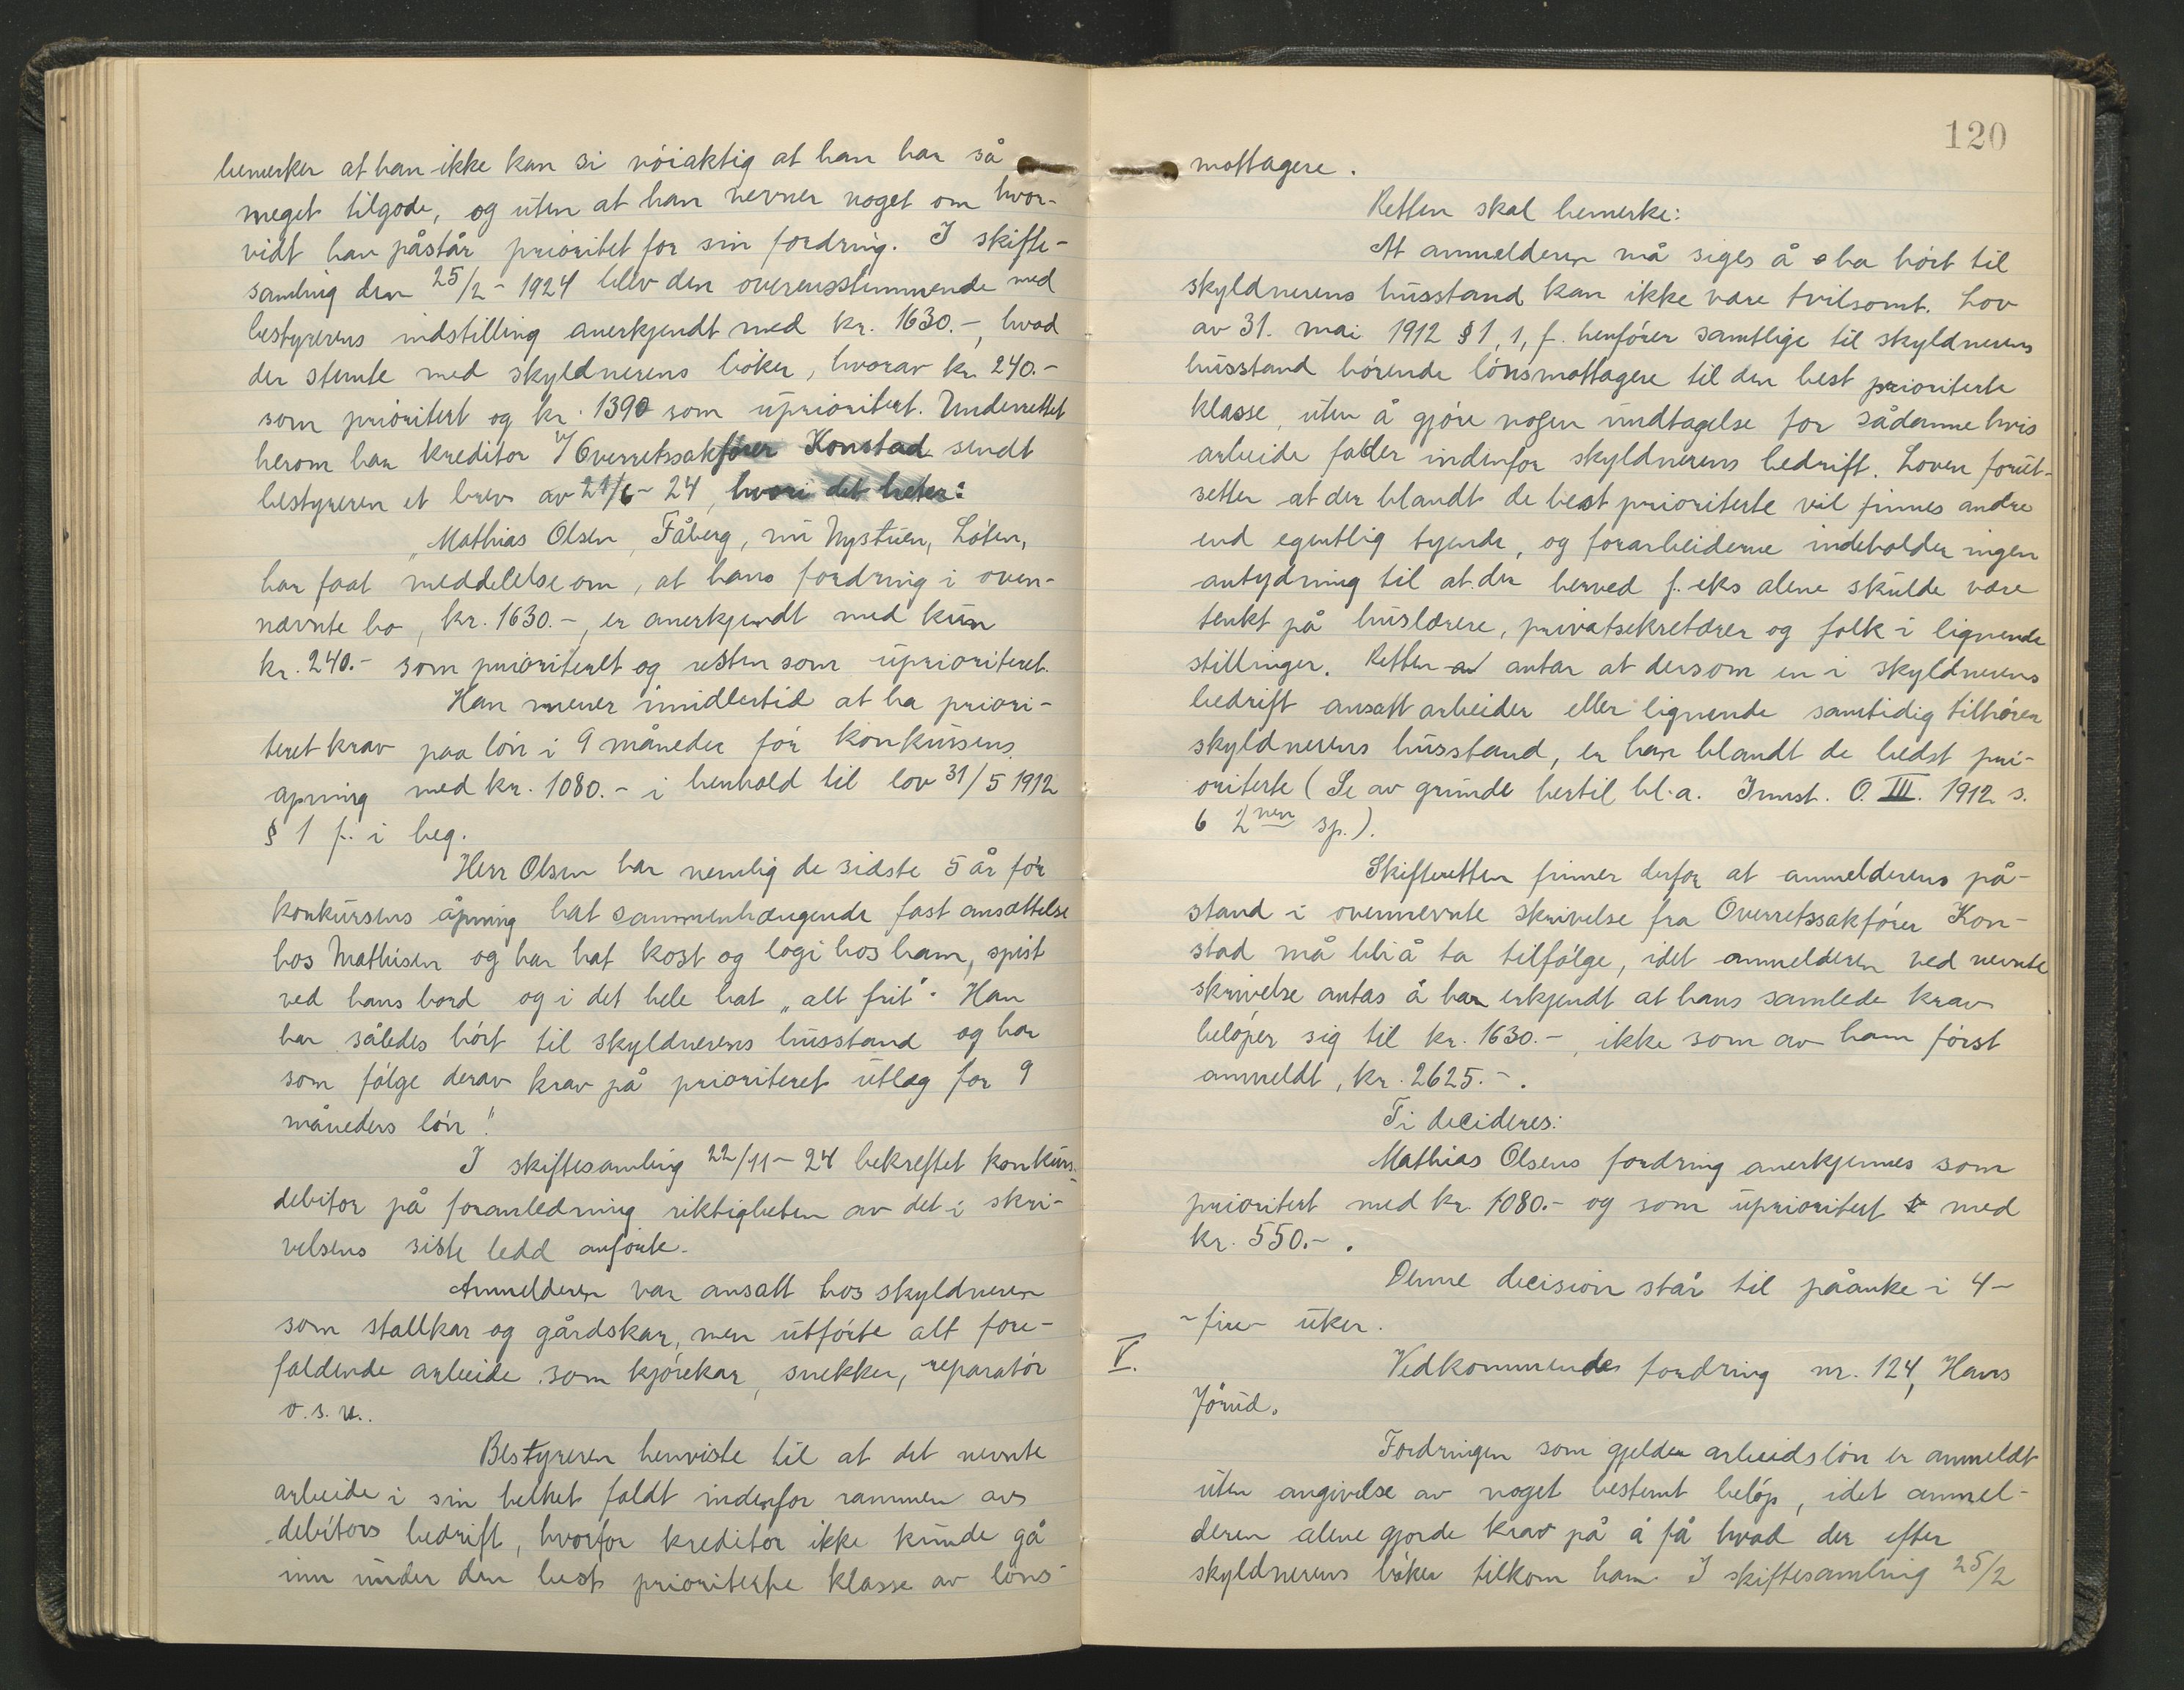 bemerker at han ikke kan si nöiaktig at han har så
meget tilgode, og uten at han nevner noget om hvor-
vidt han påstår prioritet for sin fordring. I skifte-
samling den 25/2 - 1924 blev den overensstemmende med
bestyrerens indstilling anerkjendt med kr. 1630.-, hvad
der stemte med skyldnerens böker, hvorav kr. 240.-
som prioritert og kr. 1390 som uprioritert. Underrettet
herom har kreditor v/ Overretssakförer Konstad sendt
bestyreren et brev av 21/6 - 24, hvori det heter:
„Mathias Olsen, Fåberg, nu Nystuen, Löten,
har faat meddelelse om, at hans fordring i oven-
nævnte bo, kr. 1630.-, er anerkjendt med kun
kr. 240.- som prioriteret og resten som uprioriteret.
Han mener imidlertid at ha priori-
teret krav paa lön i 9 måneder för konkursens
apning med kr. 1080.- i henhold til lov 31/5 1912
§ 1 f. i beg.
Herr Olsen har nemlig de sidste 5 år för
konkursens åpning hat sammenhængende fast ansættelse
hos Mathisen og har hat kost og logi hos ham, spist
ved hans bord og i det hele hat „alt frit". Han
har således hört til skyldnerens husstand og har
som fölge derav krav på prioriteret utlæg for 9
måneders lön."
I skiftesamling 22/11 - 24 bekreftet konkurs-
debitor på foranledning riktigheten av det i skri-
velsens siste ledd anförte.
Anmelderen var ansatt hos skyldneren
som stallkar og gårdskar, men utförte alt fore-
faldende arbeide som kjörekar, snekker, reparatör
o.s.v..
Bestyreren henviste til at det nevnte
arbeide i sin helhet faldt indenfor rammen av
debitors bedrift, hvorfor kreditor ikke kunde gå
inn under den best prioriterte klasse av löns-
120
mottagere.
Retten skal bemerke:
At anmelderen må siges å ha hört til
skyldnerens husstand kan ikke være tvilsomt. Lov
av 31. mai 1912 § 1, 1, f. henförer samtlige til skyldnerens
husstand hörende lönsmottagere til den best prioriterte
klasse, uten å gjöre nogen undtagelse for sådanne hvis
arbeide falder indenfor skyldnerens bedrift. Loven forut-
setter at der blandt de best prioriterte vil finnes andre
end egentlig tyende, og forarbeiderne indeholder ingen
antydning til at der herved f. eks alene skulde være
tenkt på huslærere, privatsekretærer og folk i lignende
stillinger. Retten antar at dersom en i skyldnerens
bedrift ansatt arbeider eller lignende samtidig tilhörer
skyldnerens husstand, er han blandt de bedst pri-
oriterte (Se av grunde hertil bl.a. Innst. O. III. 1912 s.
6 2nen sp.).
Skifteretten finner derfor at anmelderens på-
stand i ovennevnte skrivelse fra Overretssakförer Kon-
stad må bli å ta tilfölge, idet anmelderen ved nevnte
skrivelse antas å ha erkjendt at hans samlede krav
belöper sig til kr. 1630.-, ikke som av ham först
anmeldt, kr. 2625.-.
Ti decideres:
Mathias Olsens fordring anerkjennes som
prioritert med kr. 1080.- og som uprioritert med
kr. 550.-.
Denne decision står til påanke i 4-
-fire- uker.
V.
Vedkommende fordring nr. 124, Hans
Jörud.
Fordringen som gjelder arbeidslön er anmeldt
uten angivelse av noget bestemt belöp, idet anmel-
deren alene gjorde krav på å få hvad der efter
skyldnerens böker tilkom ham. I skiftesamling 25/2